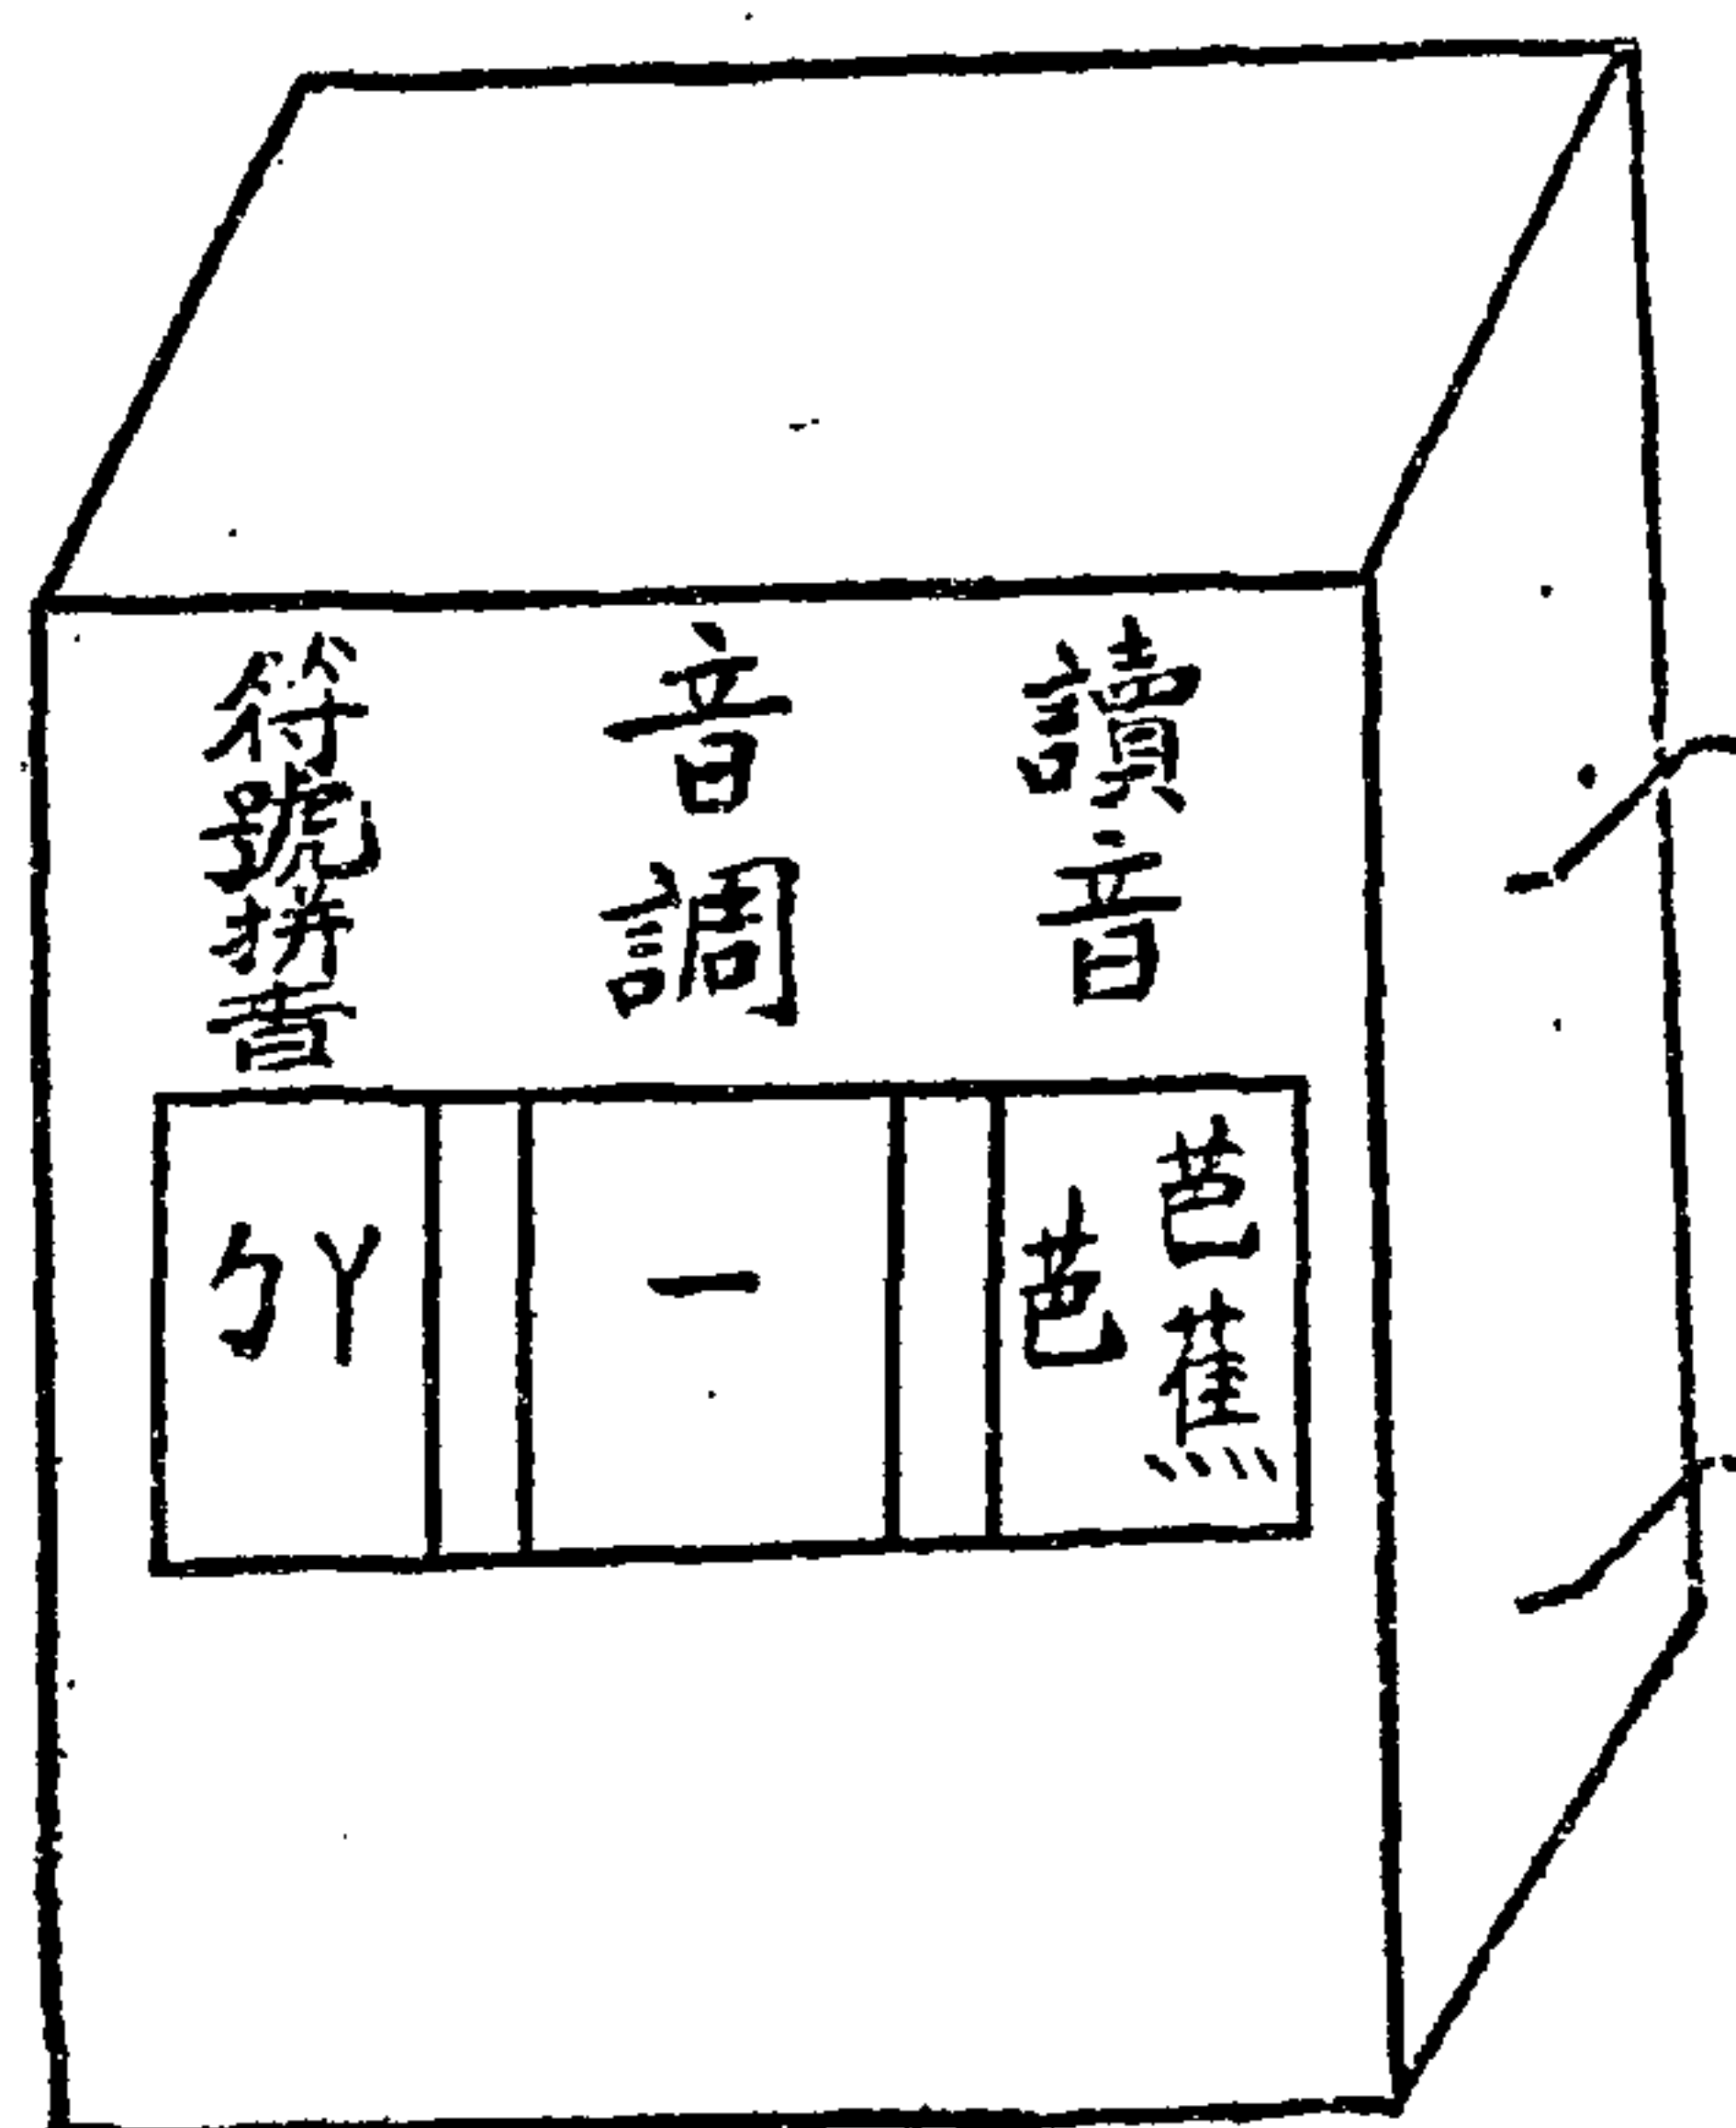 讀音
音調
符號拼音
芭蕉
芭
一
ㄅㄚ